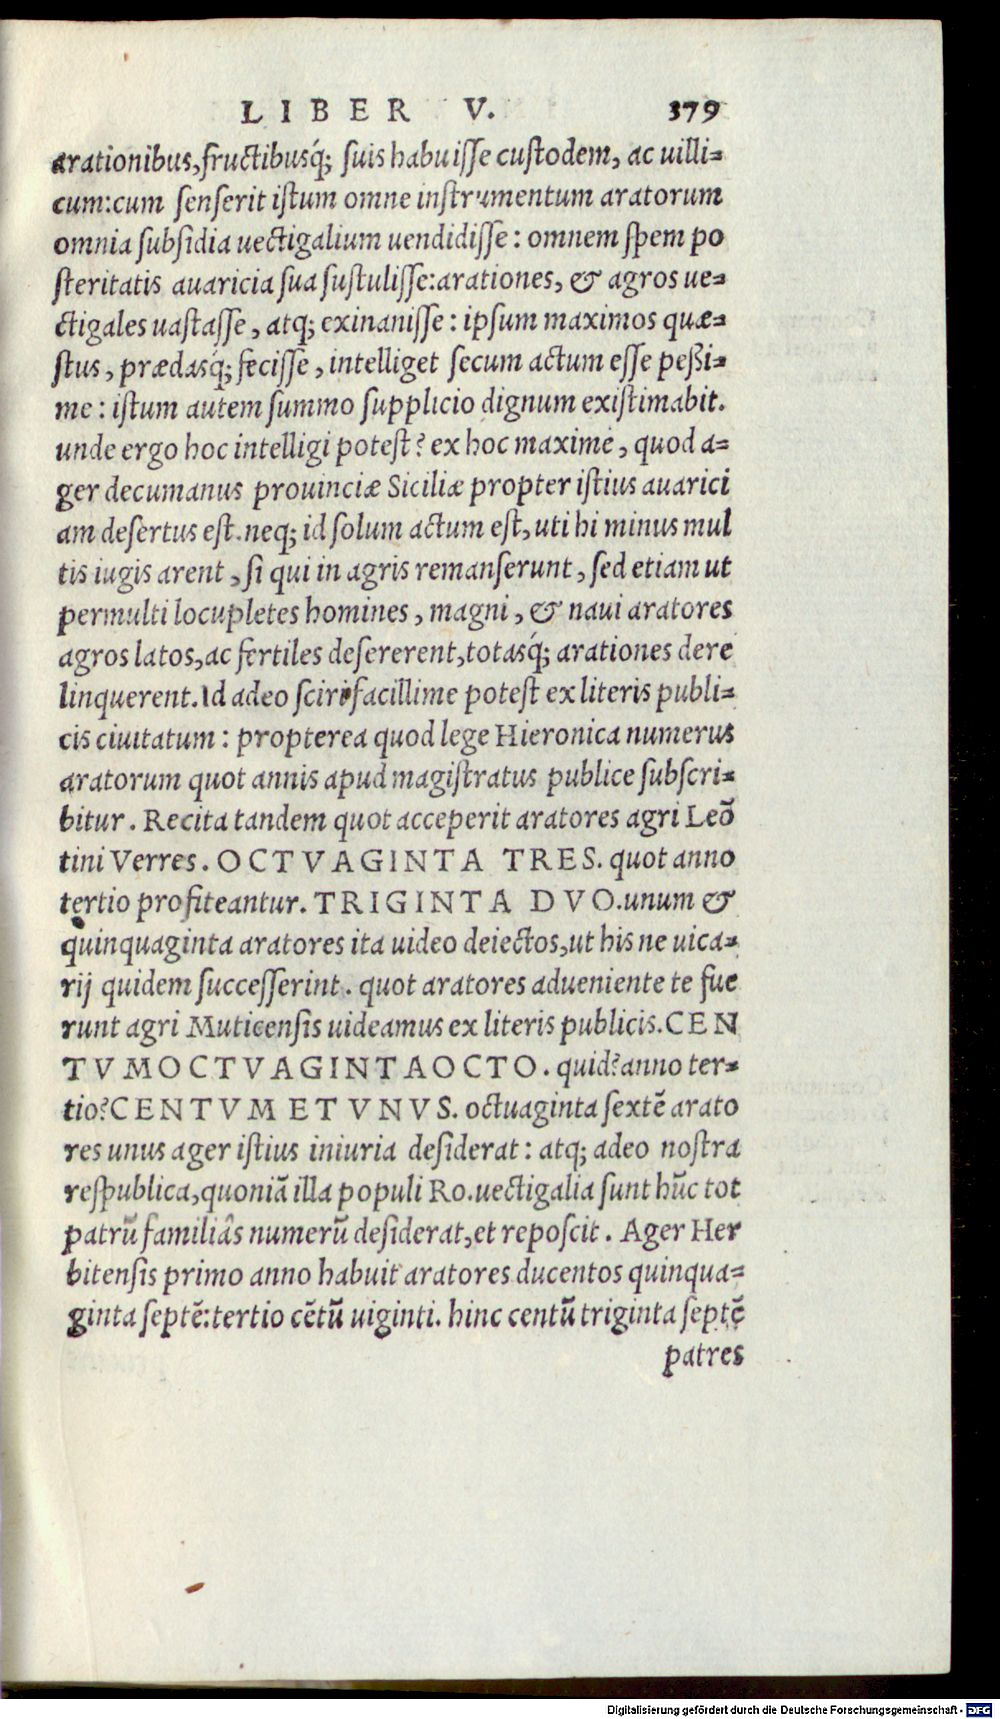 LIBER V. 379
arationibus, fructibusq́; suis habuisse custodem, ac uilli-
cum: cum senserit istum omne instrumentum aratorum
omnia subsidia uectigalium uendidisse: omnem spem po
steritatis auaricia sua sustulisse: arationes, & agros ue-
ctigales uastasse, atq; exinanisse: ipsum maximos quæ-
stus, prædasq́; fecisse, intelliget secum actum esse peßi-
me: istum autem summo supplicio dignum existimabit.
unde ergo hoc intelligi potest? ex hoc maxime, quod a-
ger decumanus prouinciæ Siciliæ propter istius auarici
am desertus est. neq; id solum actum est, uti hi minus mul
tis iugis arent, si qui in agris remanserunt, sed etiam ut
permulti locupletes homines, magni, & naui aratores
agros latos, ac fertiles desererent, totasq́; arationes dere
linquerent. Id adeo sciri facillime potest ex literis publi-
cis ciuitatum: propterea quod lege Hieronica numerus
aratorum quot annis apud magistratus publice subscri-
bitur. Recita tandem quot acceperit aratores agri Leõ
tini Verres. OCTVAGINTA TRES. quot anno
tertio profiteantur. TRIGINTA DVO. unum &
quinquaginta aratores ita uideo deiectos, ut his ne uica-
rij quidem successerint. quot aratores adueniente te fue
runt agri Muticensis uideamus ex literis publicis. CEN
TVMOCTVAGINTAOCTO. quid? anno ter-
tio? CENTVM ET VNVS. octuaginta septẽ arato
res unus ager istius iniuria desiderat: atq; adeo nostra
respublica, quoniã illa populi Ro. uectigalia sunt hũc tot
patrũ familiâs numerũ desiderat, et reposcit. Ager Her
bitensis primo anno habuit aratores ducentos quinqua-
ginta septẽ: tertio cẽtũ uiginti. hinc centũ triginta septẽ
patres
Digitalisierung gefördert durch die Deutsche Forschungsgemeinschaft - DFG